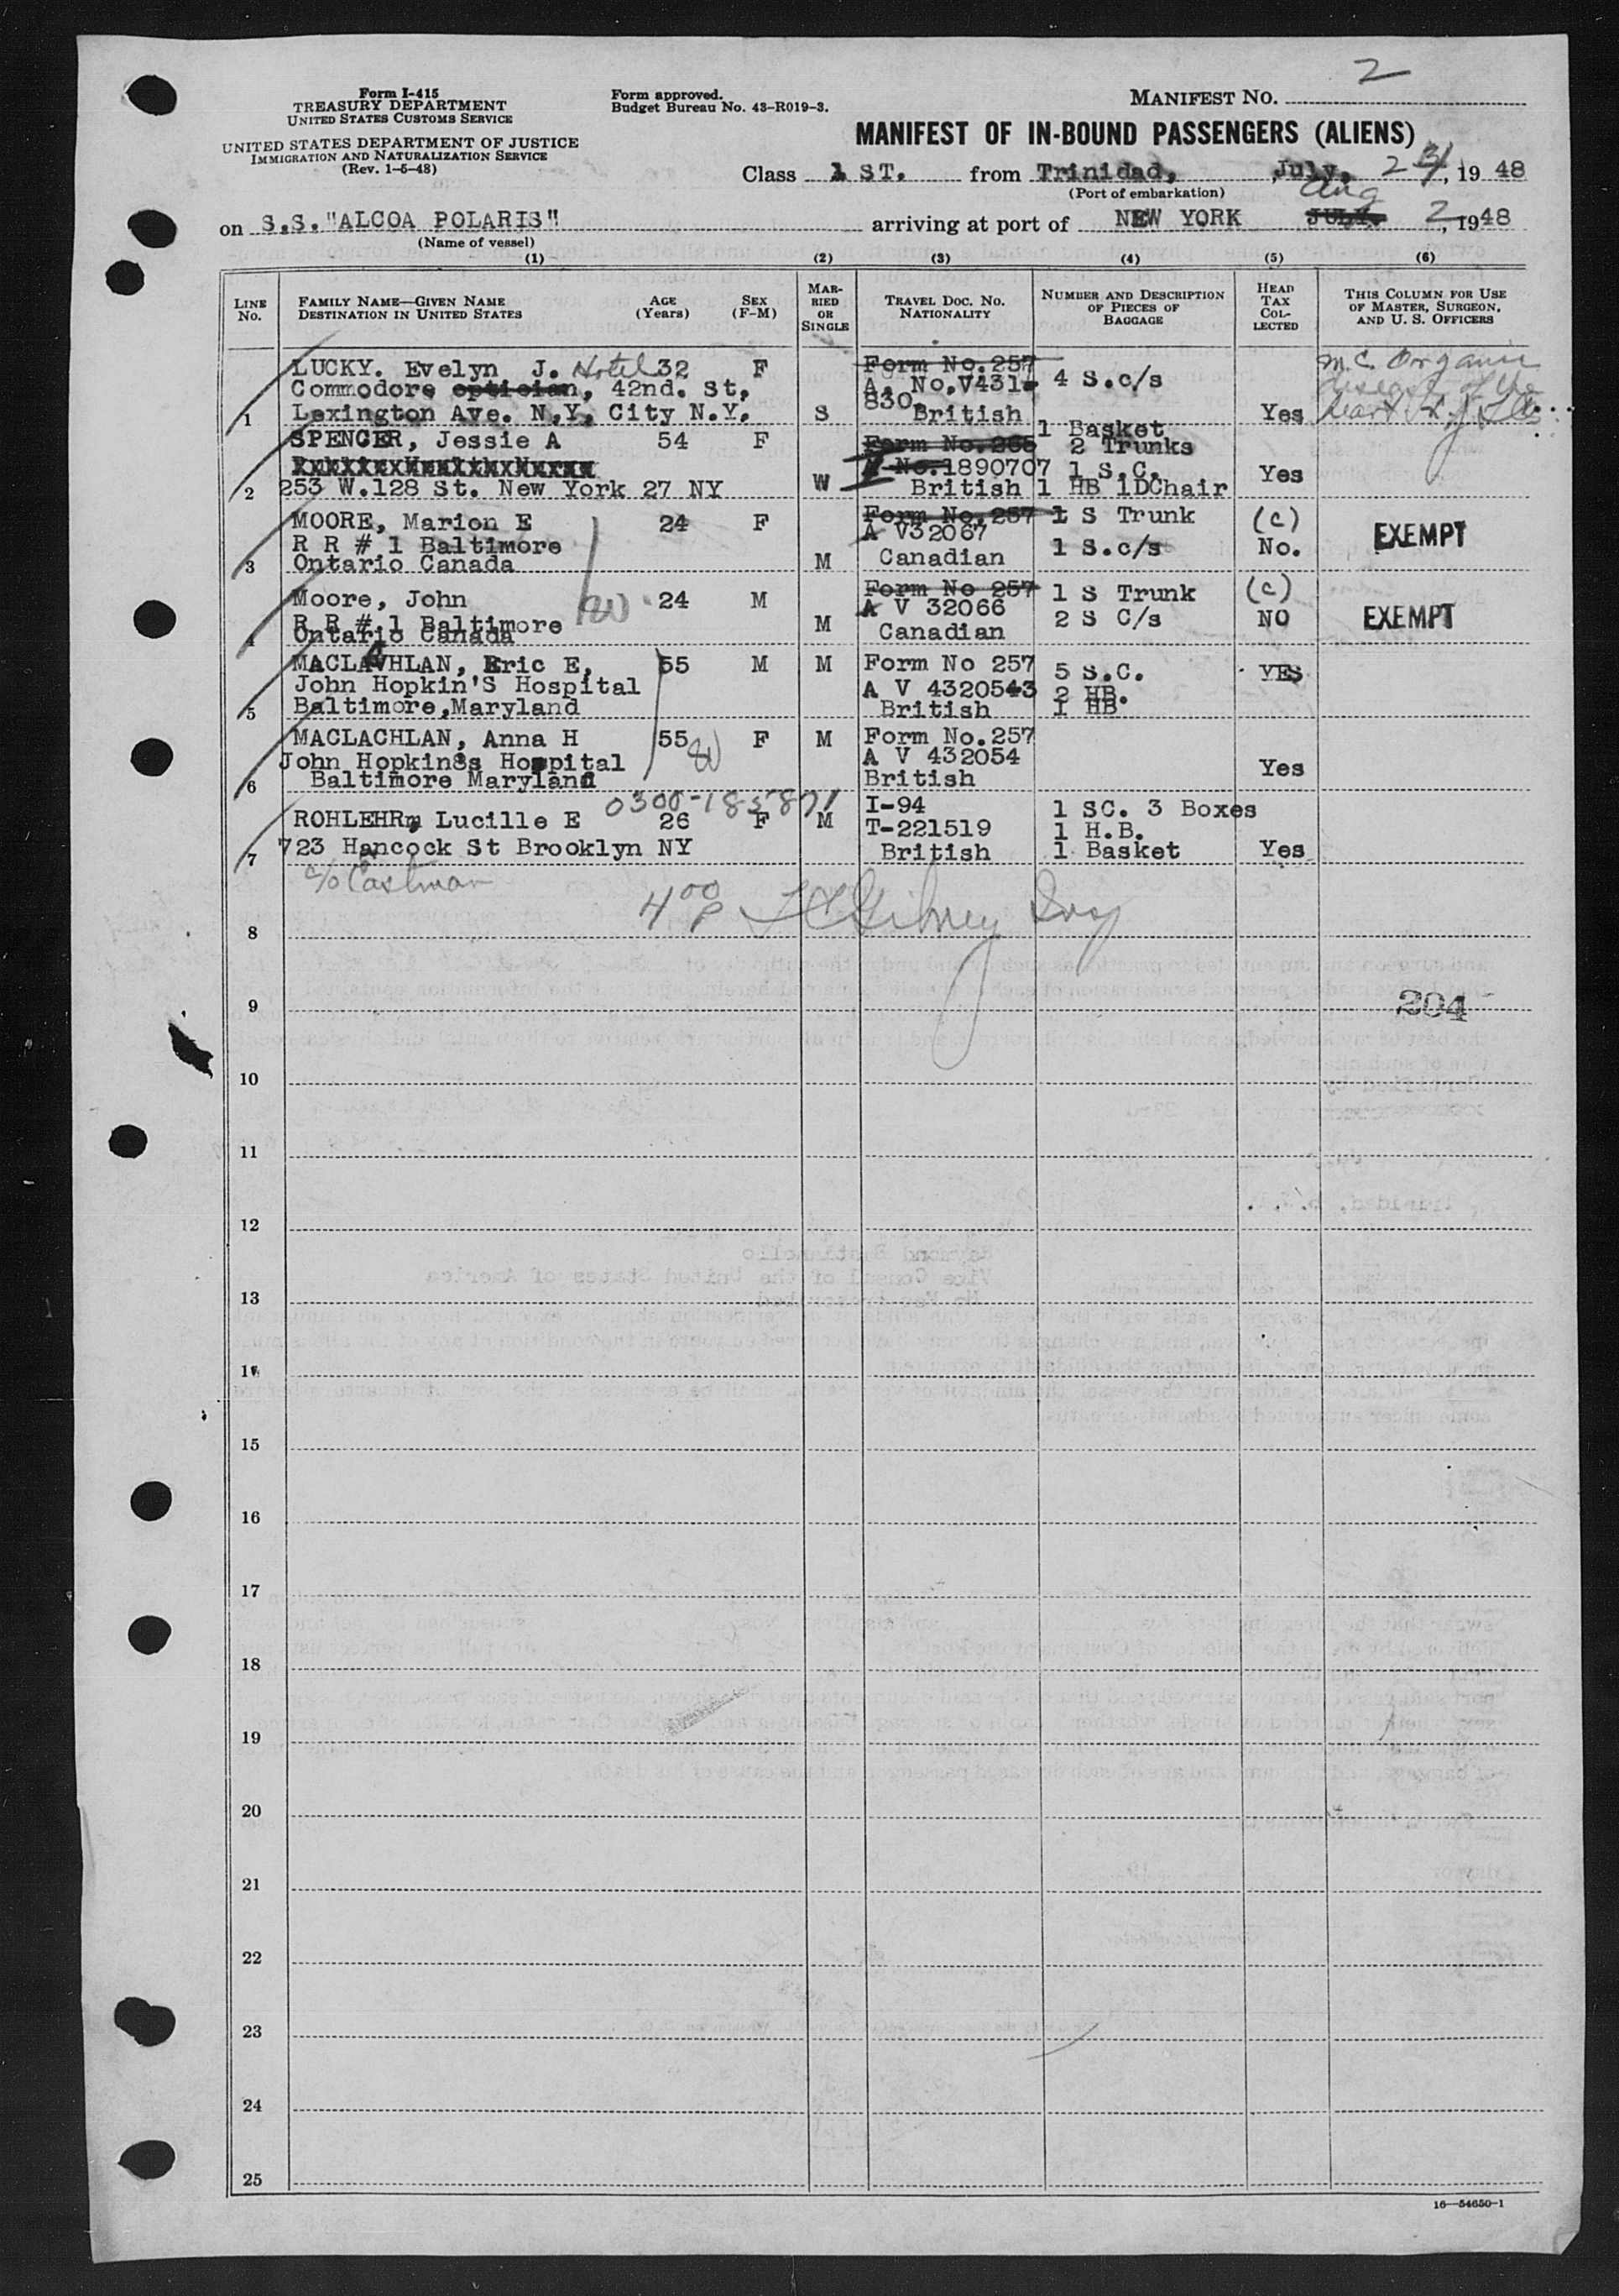 2
Form I-415
TREASURY DEPARTMENT
UNITED STATES CUSTOMS SERVICE
UNITED STATES DEPARTMENT OF JUSTICE
IMMIGRATION AND NATURALIZATION SERVICE
(Rev. 1-5-48)
Form approved.
Budget Bureau No. 43-R019-3.
MANIFEST NO.
MANIFEST OF IN-BOUND PASSENGERS (ALIENS)
Class 1 ST. from Trinidad, July, 2 , 19 48
(Port of embarkation)
on S.S. "ALCOA POLARIS" arriving at port of NEW YORK JULY. Aug 2, 1948
(Name of vessel)
(1) (2) (3) (4) (5) (6)
LINE No.
FAMILY NAME—GIVEN NAME
DESTINATION IN UNITED STATES
AGE (Years)
SEX (F-M)
MARRIED OR SINGLE
TRAVEL DOC. NO. NATIONALITY
NUMBER AND DESCRIPTION OF PIECES OF BAGGAGE
HEAD TAX COLLECTED
THIS COLUMN FOR USE OF MASTER, SURGEON, AND U. S. OFFICERS
LUCKY. Evelyn J. Hotel 32 F Form No. 257 M.C. Organic
Commodore optician, 42nd. St, A. No,V431- 4 S.c/s disease of the
830
1 Lexington Ave. N,Y, City N.Y. S British Yes heart
1 Basket
SPENCER, Jessie A 54 F Form No. 2 Trunks
No. 1890707 1 S.C. Yes
2 253 W.128 St. New York 27 NY W British 1 HB 1DChair
MOORE, Marion E 24 F Form No. 257 1 S Trunk (c) EXEMPT
R R # 1 Baltimore A V32067 1 S.c/s No.
3 Ontario Canada M Canadian
Moore, John 24 M Form No 257 1 S Trunk (c) EXEMPT
R R # 1 Baltimore M A V 32066 2 S C/s NO
4 Ontario Canada Canadian
MACLAVHLAN, Eric E, 55 M M Form No 257 5 S.C. YES
John Hopkin'S Hospital A V 4320543 2 HB.
5 Baltimore,Maryland British 1 HB
MACLACHLAN, Anna H 55 F M Form No.257
John Hopkinss Hospital A V 432054
6 Baltimore Maryland British Yes
0300-185871 I-94 1 SC. 3 Boxes
ROHLEHR, Lucille E 26 F M T-221519 1 H.B.
7 723 Hancock St Brooklyn NY British 1 Basket Yes
c/o Eastman
4 00 P
8
9
204
10
11
12
13
14
15
16
17
18
19
20
21
22
23
24
25
16—54650-1